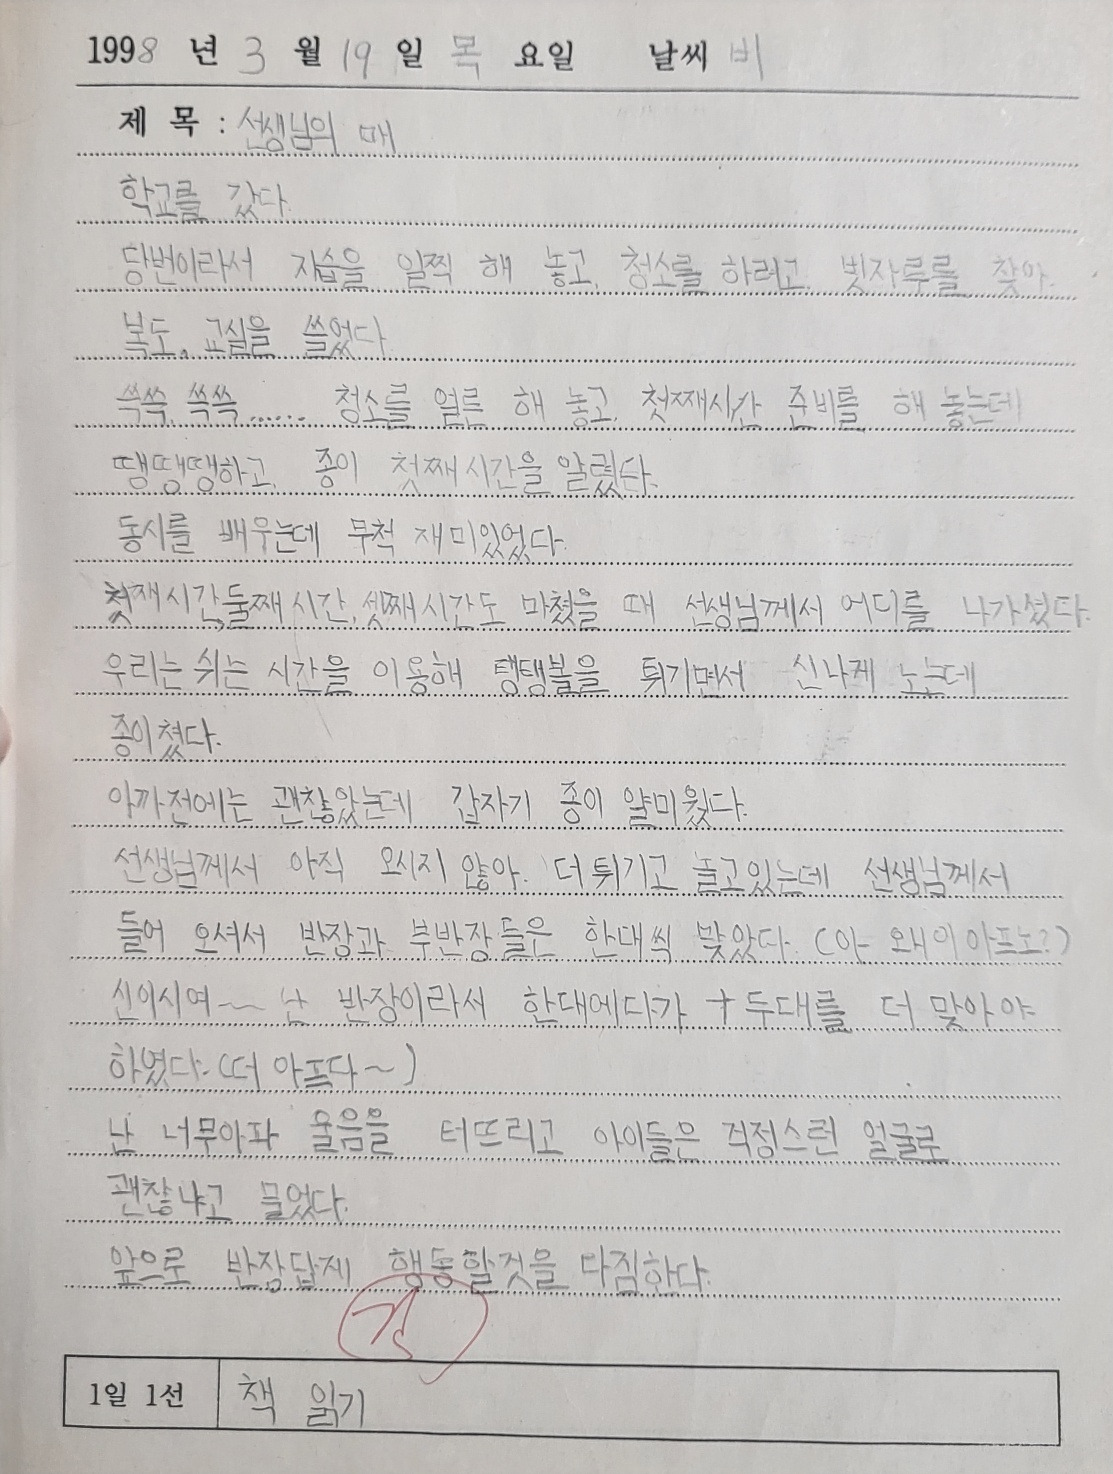 1998 년 3 월 19 일 목 요일 날씨 비
제 목 : 선생님의 매
학교를 갔다.
당번이라서 자습을 일찍 해 놓고, 청소를 하려고, 빗자루를 찾아.
복도, 교실을 쓸었다.
쓱쓱, 쓱쓱...... 청소를 얼른 해 놓고, 첫째시간 준비를 해 놓는데
땡땡땡하고, 종이 첫째시간을 알렸다.
동시를 배우는데 무척 재미있었다.
첫째시간,둘째시간,셋째시간도 마쳤을 때 선생님께서 어디를 나가셨다.
우리는 쉬는 시간을 이용해 탱탱볼을 튀기면서 신나게 노는데
종이쳤다.
아까전에는 괜찮았는데 갑자기 종이 얄미웠다.
선생님께서 아직 오시지 않아. 더 튀기고 놀고있는데 선생님께서
들어 오셔서 반장과 부반장들은 한대씩 맞았다. (아- 왜 이 아프노?)
신이시여~ 난 반장이라서 한대에다가 + 두대를 더 맞아야
하였다. (더 아프다~)
난 너무아파 울음을 터뜨리고 아이들은 걱정스런 얼굴로
괜찮냐고 물었다.
앞으로 반장답게 행동할것을 다짐한다.
검
1일 1선 책 읽기